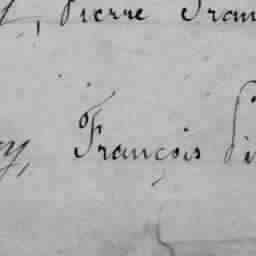 Pierre Fran
François Pi